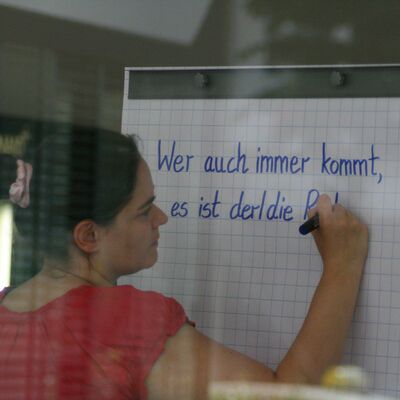 Wer auch immer kommt,
es ist der/die